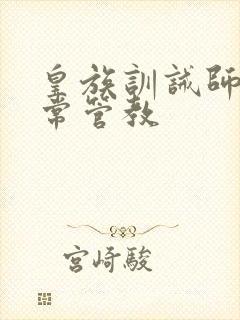 皇族訓誡師
常管教
宮崎駿